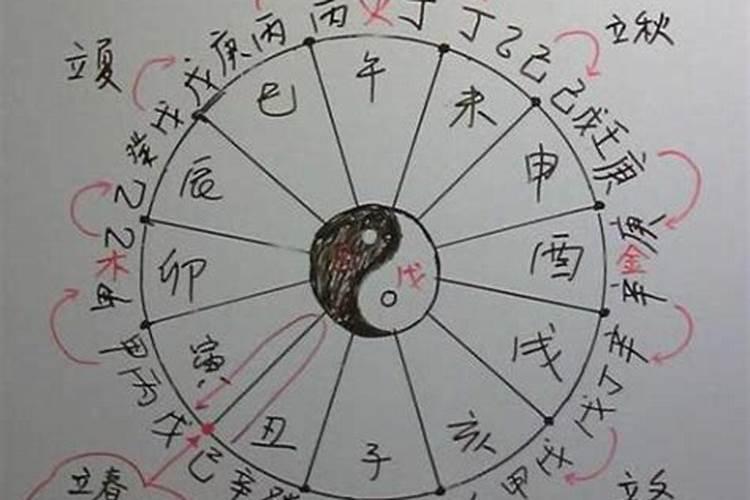 立夏
立秋
立春
戊戊庚丙
丙火丁
丁乙己
己戊壬庚
庚金辛
辛丁戊
戊甲
己辛癸
戊丙甲
甲木乙
乙癸戊
巳
午
未
申
酉
戌
亥
子
丑
寅
卯
辰
戊